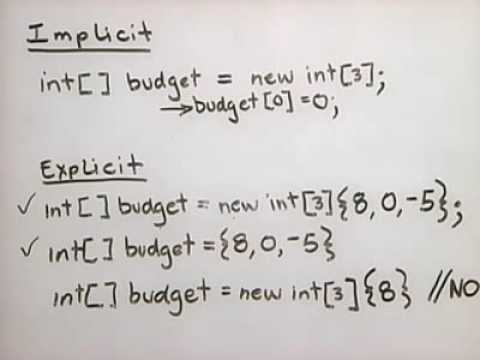 Implicit
int[] budget = new int[3];
→budget[0]=0;
Explicit
✓ int[] budget = new int[3]{8, 0, -5};
✓ int[] budget = {8, 0, -5}
int[] budget = new int[3]{8} //NO